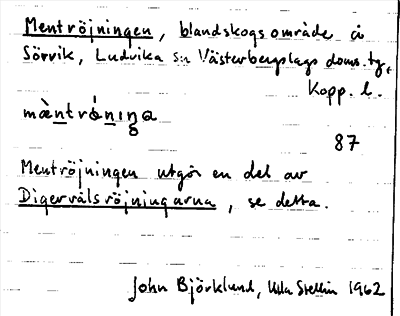 Mentröjningen, blandskogsområde å
Sörvik, Ludvika sn Västerbergslags doms. tg,
Kopp. l.
mæ̀ntrǿniŋa
87
Mentröjningen utgör en del av
Digervålsröjningarna, se detta.
John Björklund, Ulla Stellin 1962